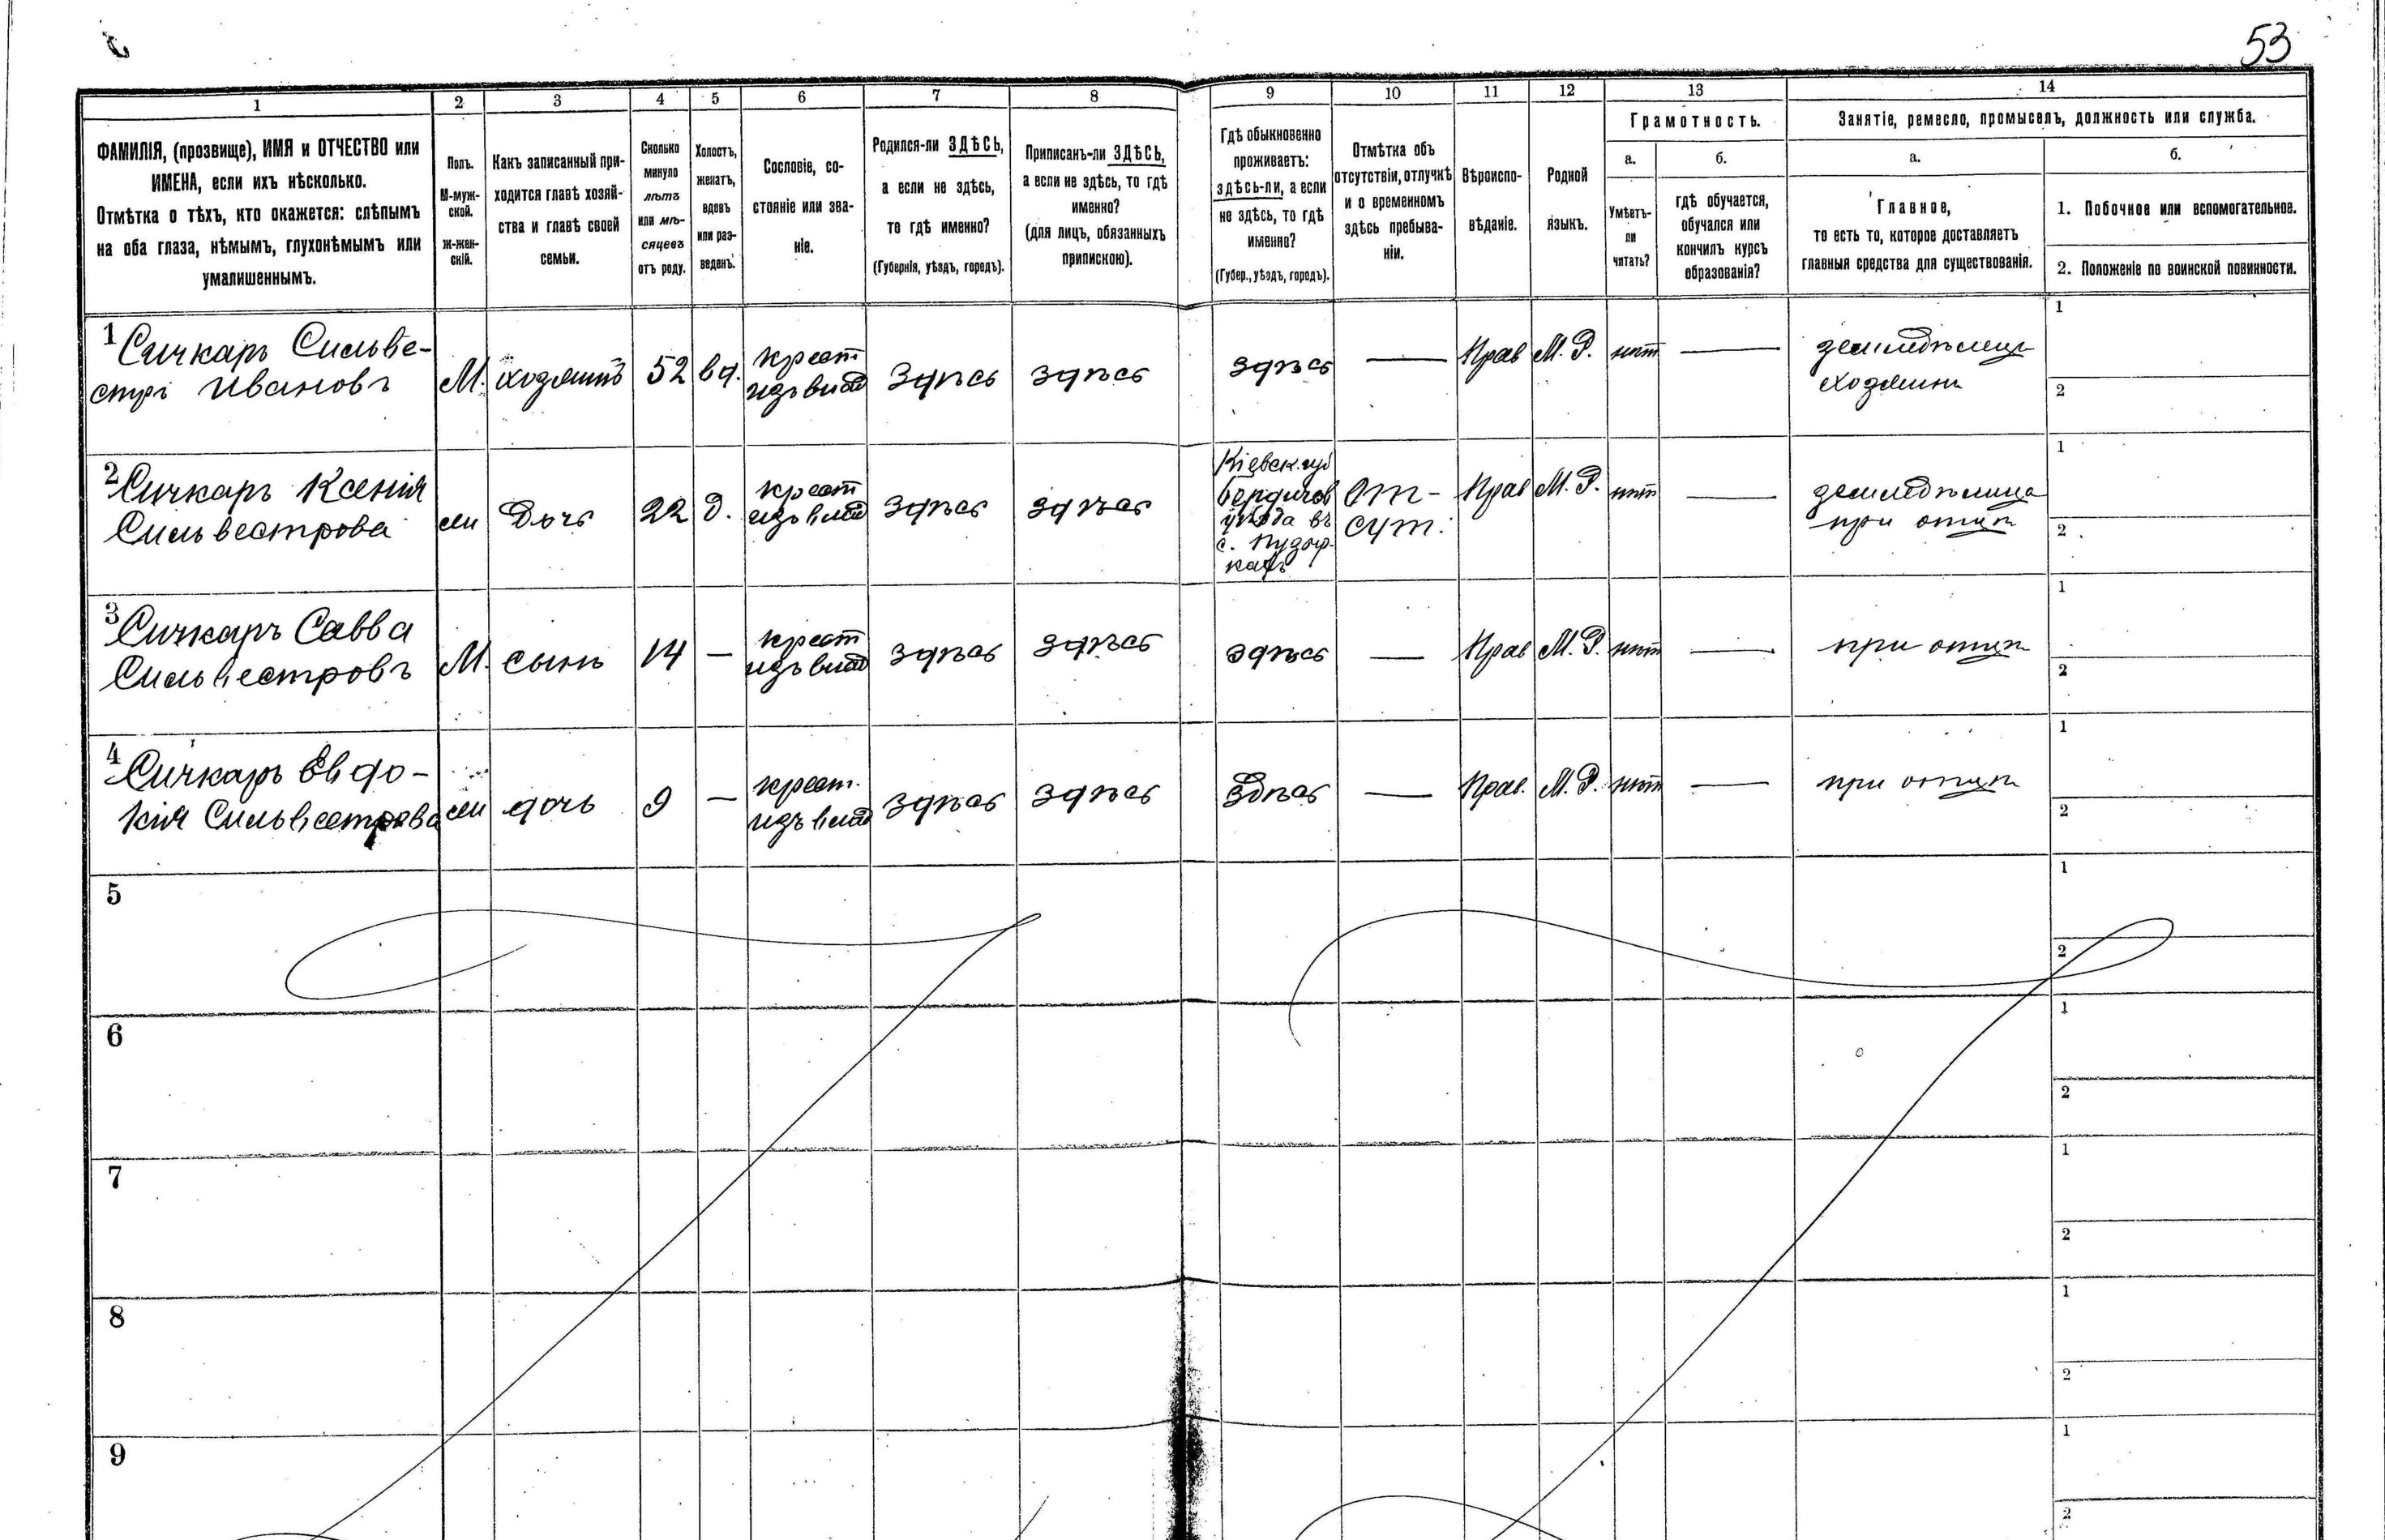 53
1 2 3 4 5 6 7 8 9 10 11 12 13 14
ФАМИЛІЯ, (прозвище), ИМЯ и ОТЧЕСТВО или
ИМЕНА, если ихъ нѣсколько.
Отмѣтка о тѣхъ, кто окажется: слѣпымъ
на оба глаза, нѣмымъ, глухонѣмымъ или
умалишеннымъ.
Полъ.
М-муж-
ской.
Ж-жен-
скій.
Какъ записанный при-
ходится главѣ хозяй-
ства и главѣ своей
семьи.
Сколько
минуло
лѣтъ
или мѣ-
сяцевъ
отъ роду.
Холостъ,
женатъ,
вдовъ
или раз-
веденъ.
Сословіе, со-
стояніе или зва-
ніе.
Родился-ли ЗДѢСЬ,
а если не здѣсь,
то гдѣ именно?
(Губернія, уѣздъ, городъ).
Приписанъ-ли ЗДѢСЬ,
а если не здѣсь, то гдѣ
именно?
(для лицъ, обязанныхъ
припискою).
Гдѣ обыкновенно
проживаетъ:
здѣсь-ли, а если
не здѣсь, то гдѣ
именно?
(Губер., уѣздъ, городъ).
Отмѣтка объ
отсутствіи, отлучкѣ
и о временномъ
здѣсь пребыва-
ніи.
Вѣроиспо-
вѣданіе.
Родной
языкъ.
Грамотность.
а.
Умѣетъ-
ли
читать?
б.
гдѣ обучается,
обучался или
кончилъ курсъ
образованія?
Занятіе, ремесло, промыселъ, должность или служба.
а.
Главное,
то есть то, которое доставляетъ
главныя средства для существованія.
б.
1. Побочное или вспомогательное.
2. Положеніе по воинской повинности.
1 Сичкарь Сильве-
стръ Ивановъ
М. хозяинъ 52 вд.
крест
изъ влад
здѣсь здѣсь здѣсь — Прав М. Р. нѣт —
земледѣлецъ
хозяинъ
1
2
2 Сичкарь Ксенія
Сильвестрова
Дочь 22 д.
крест
изъ влад
здѣсь здѣсь
Кіевск. губ
Бердичев
уѣзда въ
с.
От-
сут.
Прав М. Р. нѣт —
земледѣлица
при отцѣ
1
2
3 Сичкарь Савва
Сильвестровъ
М. сынъ 14 —
крест
изъ влад
здѣсь здѣсь здѣсь — Прав М. Р. нѣт —
при отцѣ
1
2
4 Сичкарь Евдо-
кія Сильвестрова
дочь 9 —
крест.
изъ влад
здѣсь здѣсь здѣсь — Прав. М. Р. нѣт —
при отцѣ
1
2
5
1
2
6
1
2
7
1
2
8
1
2
9
1
2